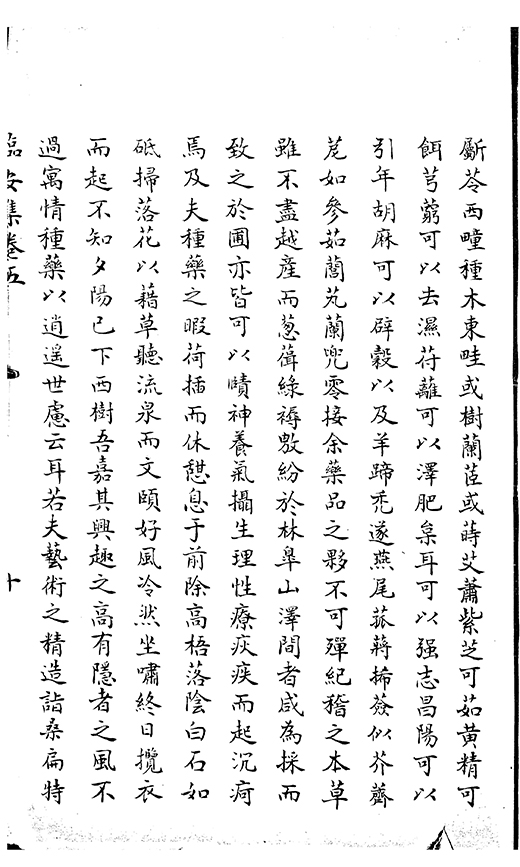 斸苓西疃種木東畦或樹蘭茝或蒔艾蕭紫芝可茹黃精可
餌芎藭可以去濕苻蘺可以澤肥枲耳可以强志昌陽可以
引年胡麻可以辟穀以及羊蹄禿遂燕尾菰蔣莃薟似芥薺
苨如參茹藘芄蘭兜零接余藥品之夥不可殫紀稽之本草
雖不盡越産而葱蒨綠縟敷紛於林臯山澤間者咸為採而
致之於圃亦皆可以嘖神養氣攝生理性療疢疾而起沉疴
焉及夫種藥之暇荷插而休憩息于前除高梧落陰白石如
砥掃落花以藉草聽流泉而文頤好風冷然坐嘯終日攬衣
而起不知夕陽已下西樹吾嘉其興趣之高有隱者之風不
過寓情種藥以逍遥世慮云耳若夫藝術之精造詣桑扁特
臨安集卷五
十